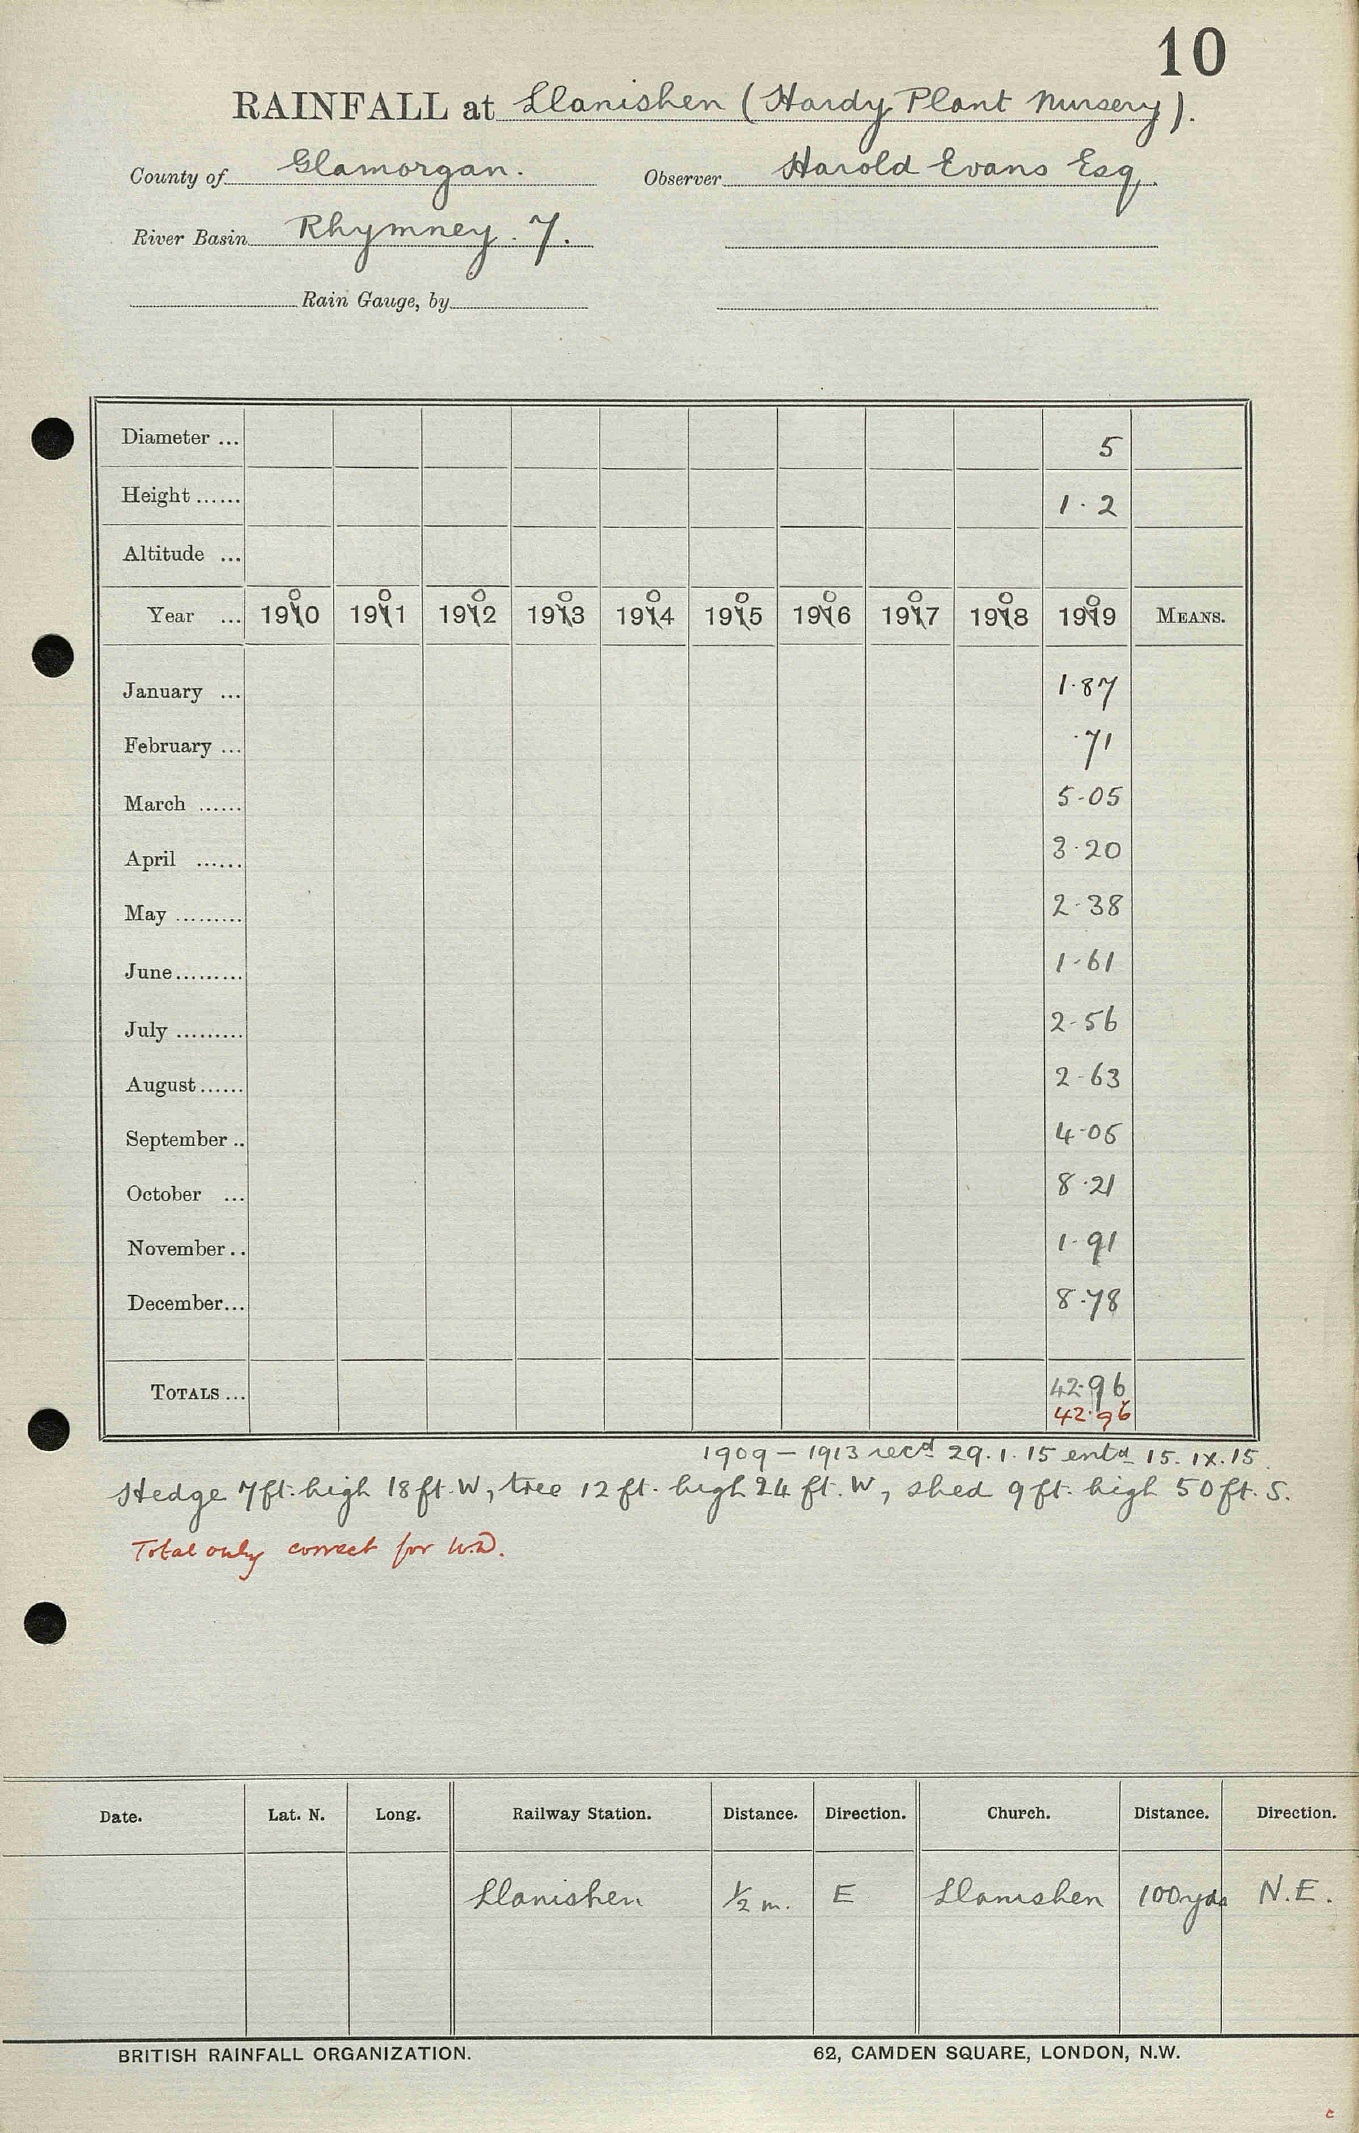 10
RAINFALL at Llanishen (Hardy Plant Nursery).
County of Glamorgan. Observer Harold Evans Esq.
River Basin Rhymney. 7.
Rain Gauge, by
Diameter ... 5
Height ...... 1.2
Altitude ...
0 0 0 0 0 0 0 0 0 0
Year ... 1910 1911 1912 1913 1914 1915 1916 1917 1918 1919 MEANS.
January ... 1.87
February ... .71
March ...... 5.05
April ...... 3.20
May ......... 2.38
June ......... 1.61
July ......... 2.56
August ...... 2.63
September .. 4.05
October ... 8.21
November .. 1.91
December ... 8.78
TOTALS ... 42.96
42.96
1909 - 1913 recd 29.1.15 entd 15.IX.15.
Hedge 7ft. high 18ft. W, tree 12ft. high 24 ft. W, shed 9ft. high 50ft. S.
Total only correct for W.D.
Date. Lat. N. Long. Railway Station. Distance. Direction. Church. Distance. Direction.
Llanishen ½ m. E Llanishen 100yds N.E.
BRITISH RAINFALL ORGANIZATION. 62, CAMDEN SQUARE, LONDON, N.W.
c